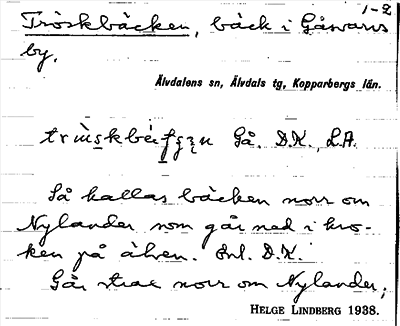 1-2
Tröskbäcken, bäck i Gåsvarvs
by.
Älvdalens sn, Älvdals tg, Kopparbergs län.
Gå. D.K., L.A.
Så kallas bäcken norr om
Nylander som går ned i kro-
ken på älven. Inl. D.K.
Går strax norr om Nylander,
HELGE LINDBERG 1938.